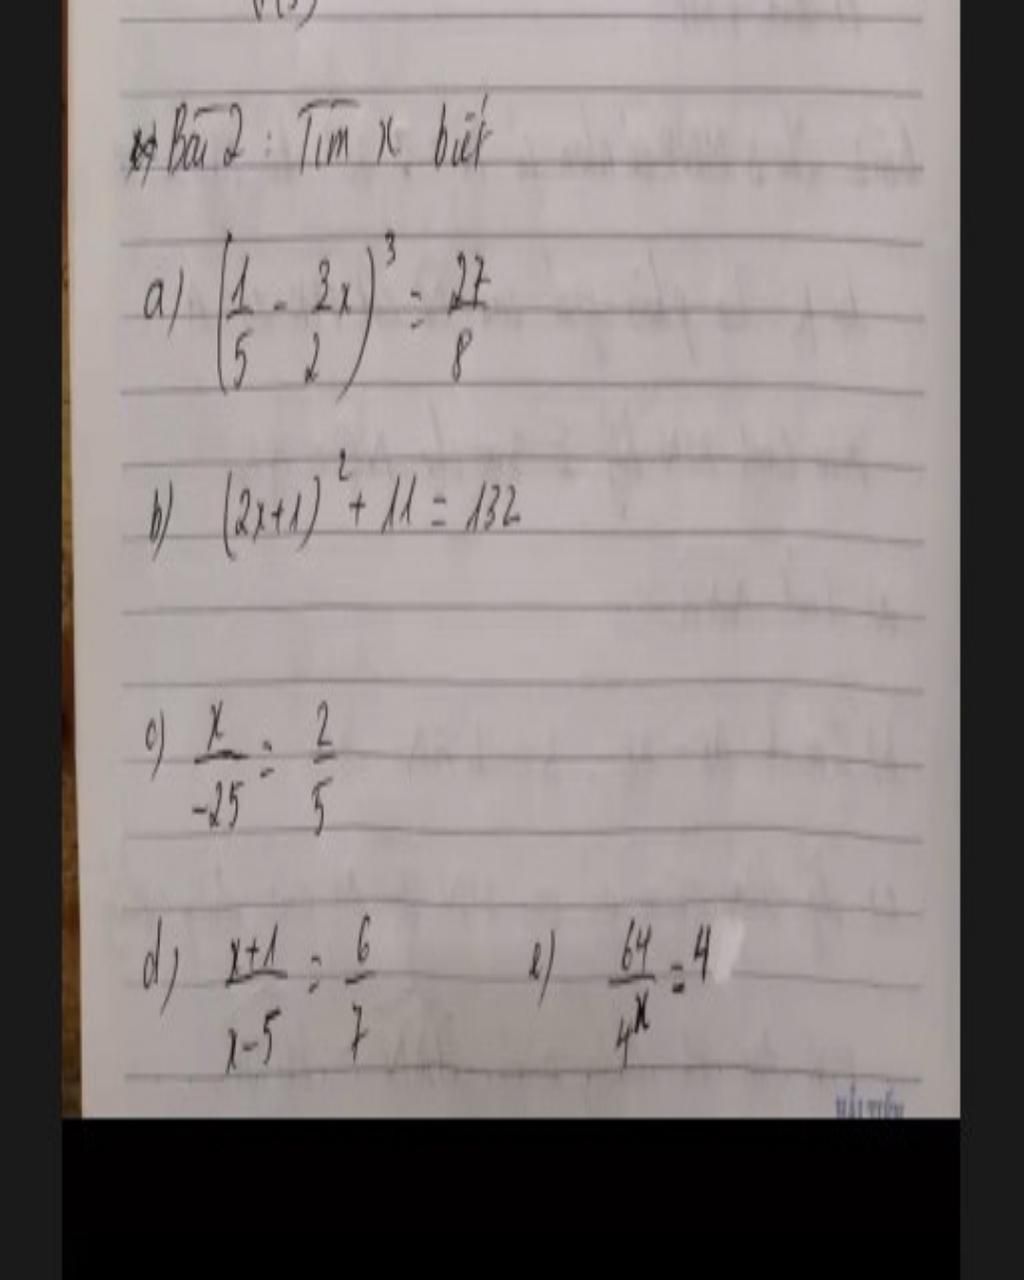 Bài 2 : Tìm x biết
a) (1/5 - 3x/2)³ = 27/8
b) (2x+1)² + 11 = 132
c) x/-25 = 2/5
d) x+1/x-5 = 6/7 e) 64/4ˣ = 4
HẢI TIẾN